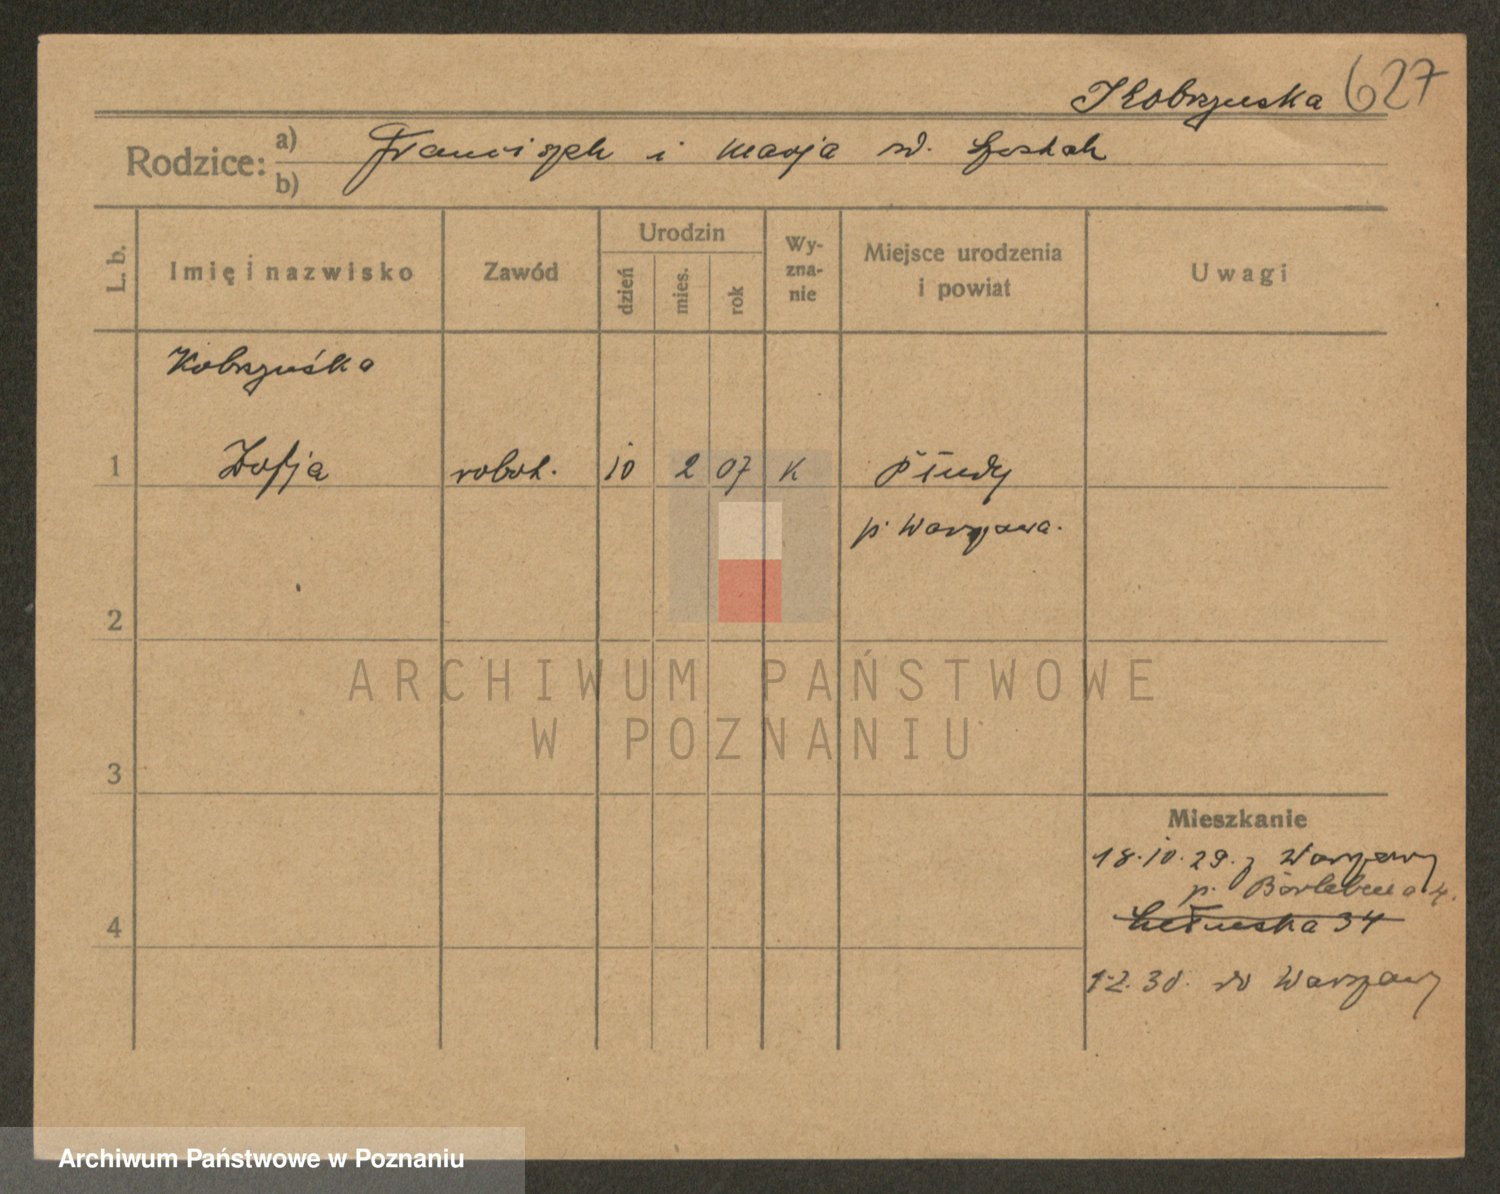 Kobrzuska 627
Rodzice: a) Franciszek i Marja
b)
L. b. Imię i nazwisko Zawód Urodzin dzień mies. rok Wy-zna-nie Miejsce urodzenia i powiat Uwagi
Kobrzuśka
1 Zofja robot. 10 2 07 K Płudy
p. Warszawa.
2
ARCHIWUM PAŃSTWOWE
W POZNANIU
3
Mieszkanie
18.10.29. z Warszawy
p.
4 34
1.2.30. do Warszawy
Archiwum Państwowe w Poznaniu